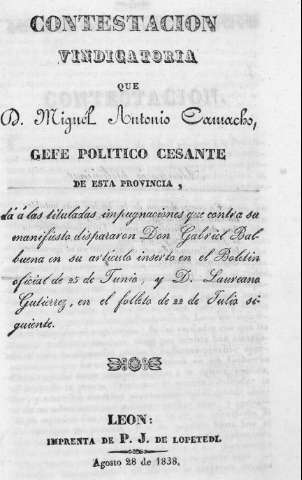 CONTESTACION
VINDICATORIA
QUE
D. Miguel Antonio Camacho,
GEFE POLITICO CESANTE
DE ESTA PROVINCIA,
dá á las tituladas impugnaciones que contra su
manifiesto dispararon Don Gabriel Bal-
buena en su artículo inserto en el Boletin
oficial de 25 de Junio, y D. Laureano
Gutiérrez, en el folleto de 22 de Julio si-
guiente.
LEON:
IMPRENTA DE P. J. DE LOPETEDI.
Agosto 28 de 1838.